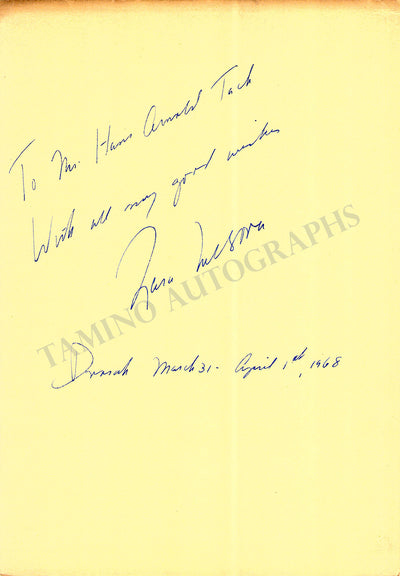 To Mr. Hans Arnold Tack
With all my good wishes
Zara Nelsova
TAMINO AUTOGRAPHS
March 31 - April 1st, 1968